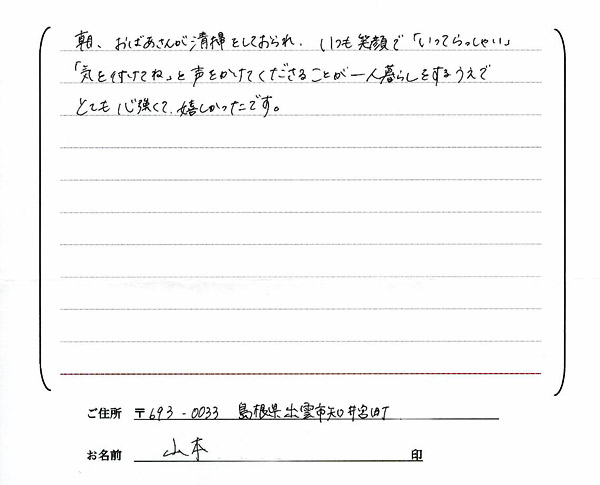 朝、おばあさんが清掃をしておられ、いつも笑顔で「いってらっしゃい」
「気を付けてね」と声をかけてくださることが一人暮らしをするうえで
とても心強くて、嬉しかったです。
ご住所 〒693-0033 島根県出雲市知井宮町
お名前 山本 印